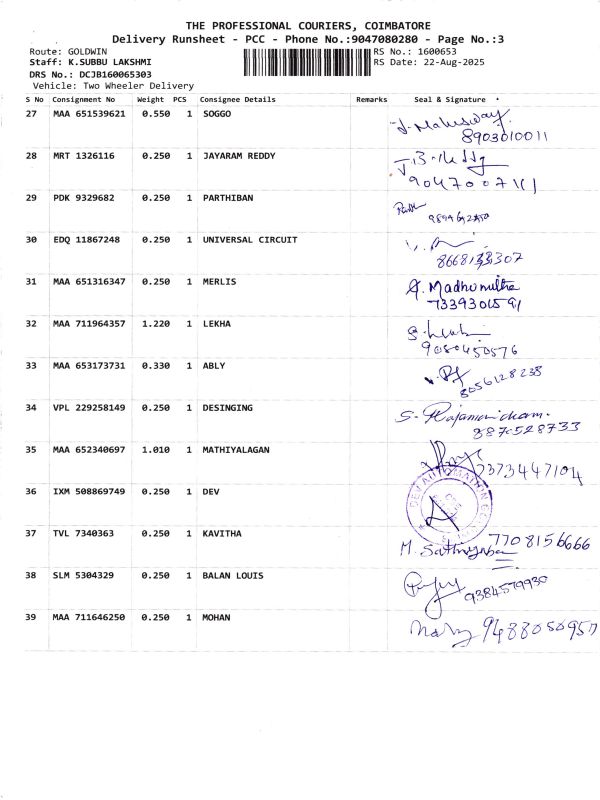 THE PROFESSIONAL COURIERS, COIMBATORE
Delivery Runsheet - PCC - Phone No.:9047080280 - Page No.:3
Route: GOLDWIN RS No.: 1600653
Staff: K.SUBBU LAKSHMI RS Date: 22-Aug-2025
DRS No.: DCJB160065303
Vehicle: Two Wheeler Delivery
S No Consignment No Weight PCS Consignee Details Remarks Seal & Signature
27 MAA 651539621 0.550 1 SOGGO
8903010011
28 MRT 1326116 0.250 1 JAYARAM REDDY
29 PDK 9329682 0.250 1 PARTHIBAN
30 EDQ 11867248 0.250 1 UNIVERSAL CIRCUIT
31 MAA 651316347 0.250 1 MERLIS
7339301591
32 MAA 711964357 1.220 1 LEKHA
9080450576
33 MAA 653173731 0.330 1 ABLY
8056128238
34 VPL 229258149 0.250 1 DESINGING
S. Rajamanickam.
8870528733
35 MAA 652340697 1.010 1 MATHIYALAGAN
7373447104
36 IXM 508869749 0.250 1 DEV
DEV AUTOMATION
37 TVL 7340363 0.250 1 KAVITHA
7708156666
38 SLM 5304329 0.250 1 BALAN LOUIS
9384579930
39 MAA 711646250 0.250 1 MOHAN
9488050957